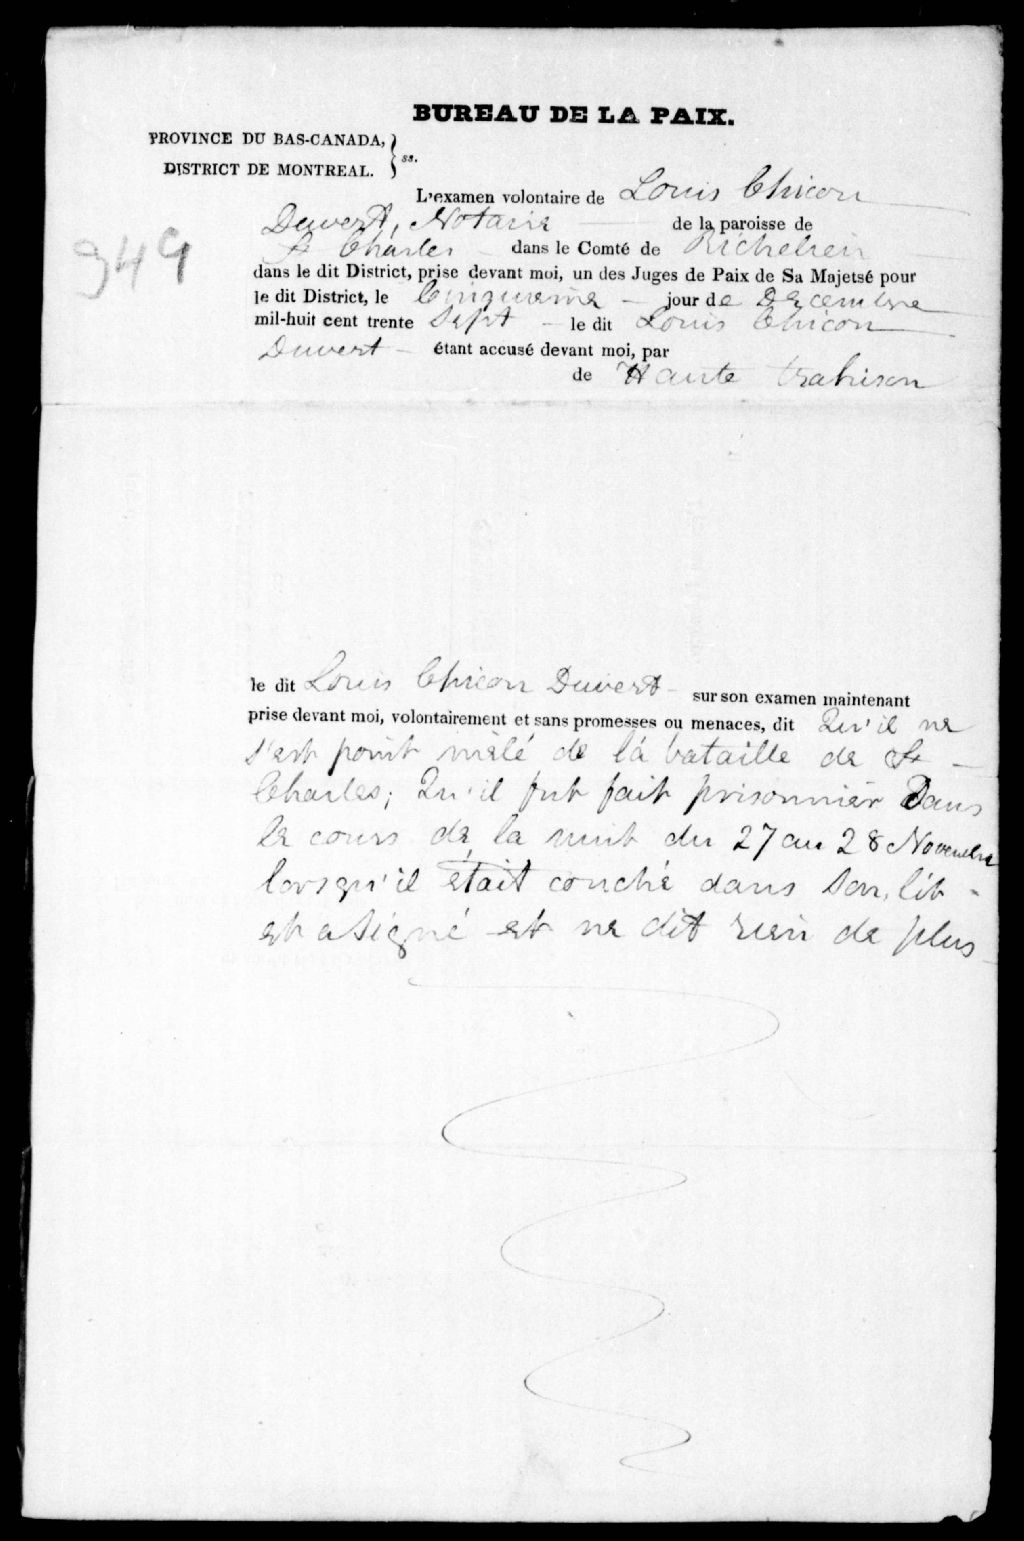 BUREAU DE LA PAIX.
PROVINCE DU BAS-CANADA,
DISTRICT DE MONTREAL. } ss.
L'examen volontaire de Louis Chicou
Duvert, Notaire de la paroisse de
949
St Charles dans le Comté de Richelieu
dans le dit District, prise devant moi, un des Juges de Paix de Sa Majetsé pour
le dit District, le Cinquieme jour de Decembre
mil-huit cent trente Sept le dit Louis Chicou
Duvert étant accusé devant moi, par
de Haute trahison
le dit Louis Chicou Duvert sur son examen maintenant
prise devant moi, volontairement et sans promesses ou menaces, dit Qu'il ne
s'est point mêlé de la bataille de St
Charles; Qu'il fut fait prisonnier Dans
le cours de la nuit du 27 au 28 Novembre
lorsqu'il était couché dans son lit -
et a Signé et ne dit rien de plus